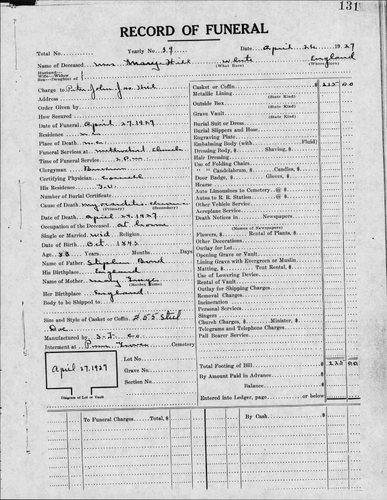 131
RECORD OF FUNERAL
Total No. Yearly No. 59 Date, April 24 1927
Name of Deceased Mrs Mary Hill White England
(What Race) (Where Born)
Husband—
Wife—Widow
Son—Daughter of
Charge to Peter John Jas. Hill
Address
Order Given by
How Secured
Date of Funeral April 27, 1927
Residence
Place of Death
Funeral Services at Methodist Church
Time of Funeral Service 2 P.M.
Clergyman
Certifying Physician
His Residence
Number of Burial Certificate
Cause of Death
(Primary) (Secondary)
Date of Death April 24, 1927
Occupation of the Deceased at home
Single or Married Wid Religion
Date of Birth Oct. 1842
Age Years Months Days
Name of Father Stephen Bond
His Birthplace England
Name of Mother Mary
(Maiden Name)
Her Birthplace England
Body to be Shipped to
Size and Style of Casket or Coffin
Manufactured by
Interment at Cemetery
April 27, 1927
Diagram of Lot or Vault
Lot No.
Grave No.
Section No.
Casket or Coffin $ 225 00
Metallic Lining
(State Kind)
Outside Box
(State Kind)
Grave Vault
(State Kind)
Burial Suit or Dress
Burial Slippers and Hose
Engraving Plate
Embalming Body (with Fluid)
Dressing Body, $ Shaving, $
Hair Dressing
Use of Folding Chairs
" " Candelabrum, $ Candles, $
Door Badge, $ Gloves, $
Hearse
Auto Limousines to Cemetery @ $
Autos to R. R. Station @ $
Other Vehicle Service
Aeroplane Service
Death Notices in Newspapers
(Names of Newspapers)
Flowers, $ Rental of Plants, $
Other Decorations
Outlay for Lot
Opening Grave or Vault
Lining Grave with Evergreen or Muslin
Matting, $ Tent Rental, $
Use of Lowering Device
Rental of Vault
Outlay for Shipping Charges
Removal Charges
Incineration
Personal Services
Singers
Church Charges, $ Minister, $
Telegrams and Telephone Charges
Pall Bearer Service
Total Footing of Bill $ 225 00
By Amount Paid in Advance
Balance $
Entered into Ledger, page or below.
To Funeral Charges Total, $
By Cash $